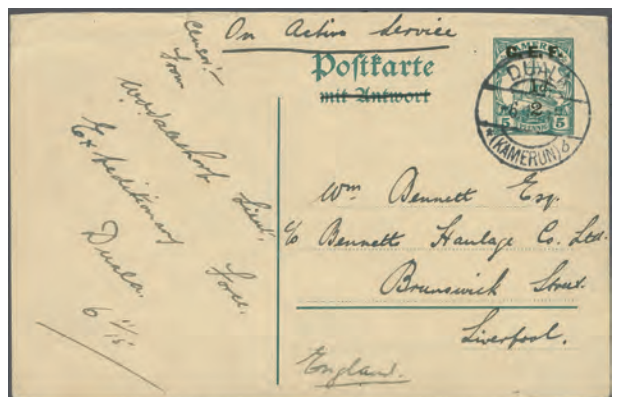 On Active Service
Postkarte
mit Antwort
KAMERUN
C. E. F.
1d
5 PFENNIG 5
DUALA
2
* (KAMERUN) a
Censor:-
From
Lieut.
Expeditionary Force.
Duala.
6 11/15
Wm Bennett Esq.
c/o Bennetts Haulage Co. Ltd.
Brunswick Street.
Liverpool.
England.